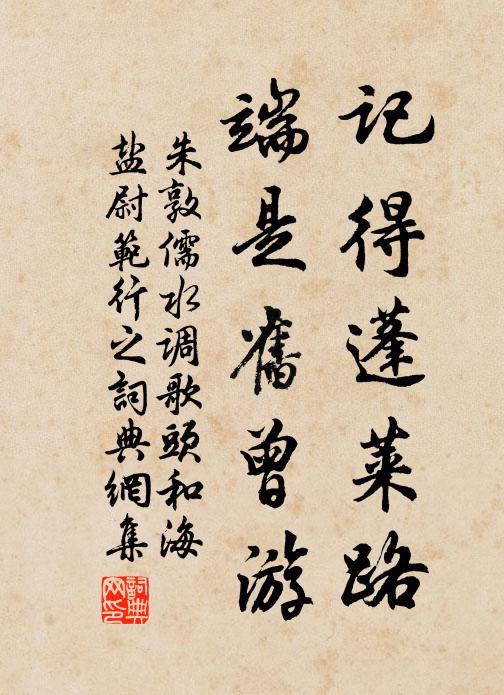 记得蓬莱路
端是舊曾游
朱敦儒水调歌頭和海
盐尉範行之詞典網集
詞典网印